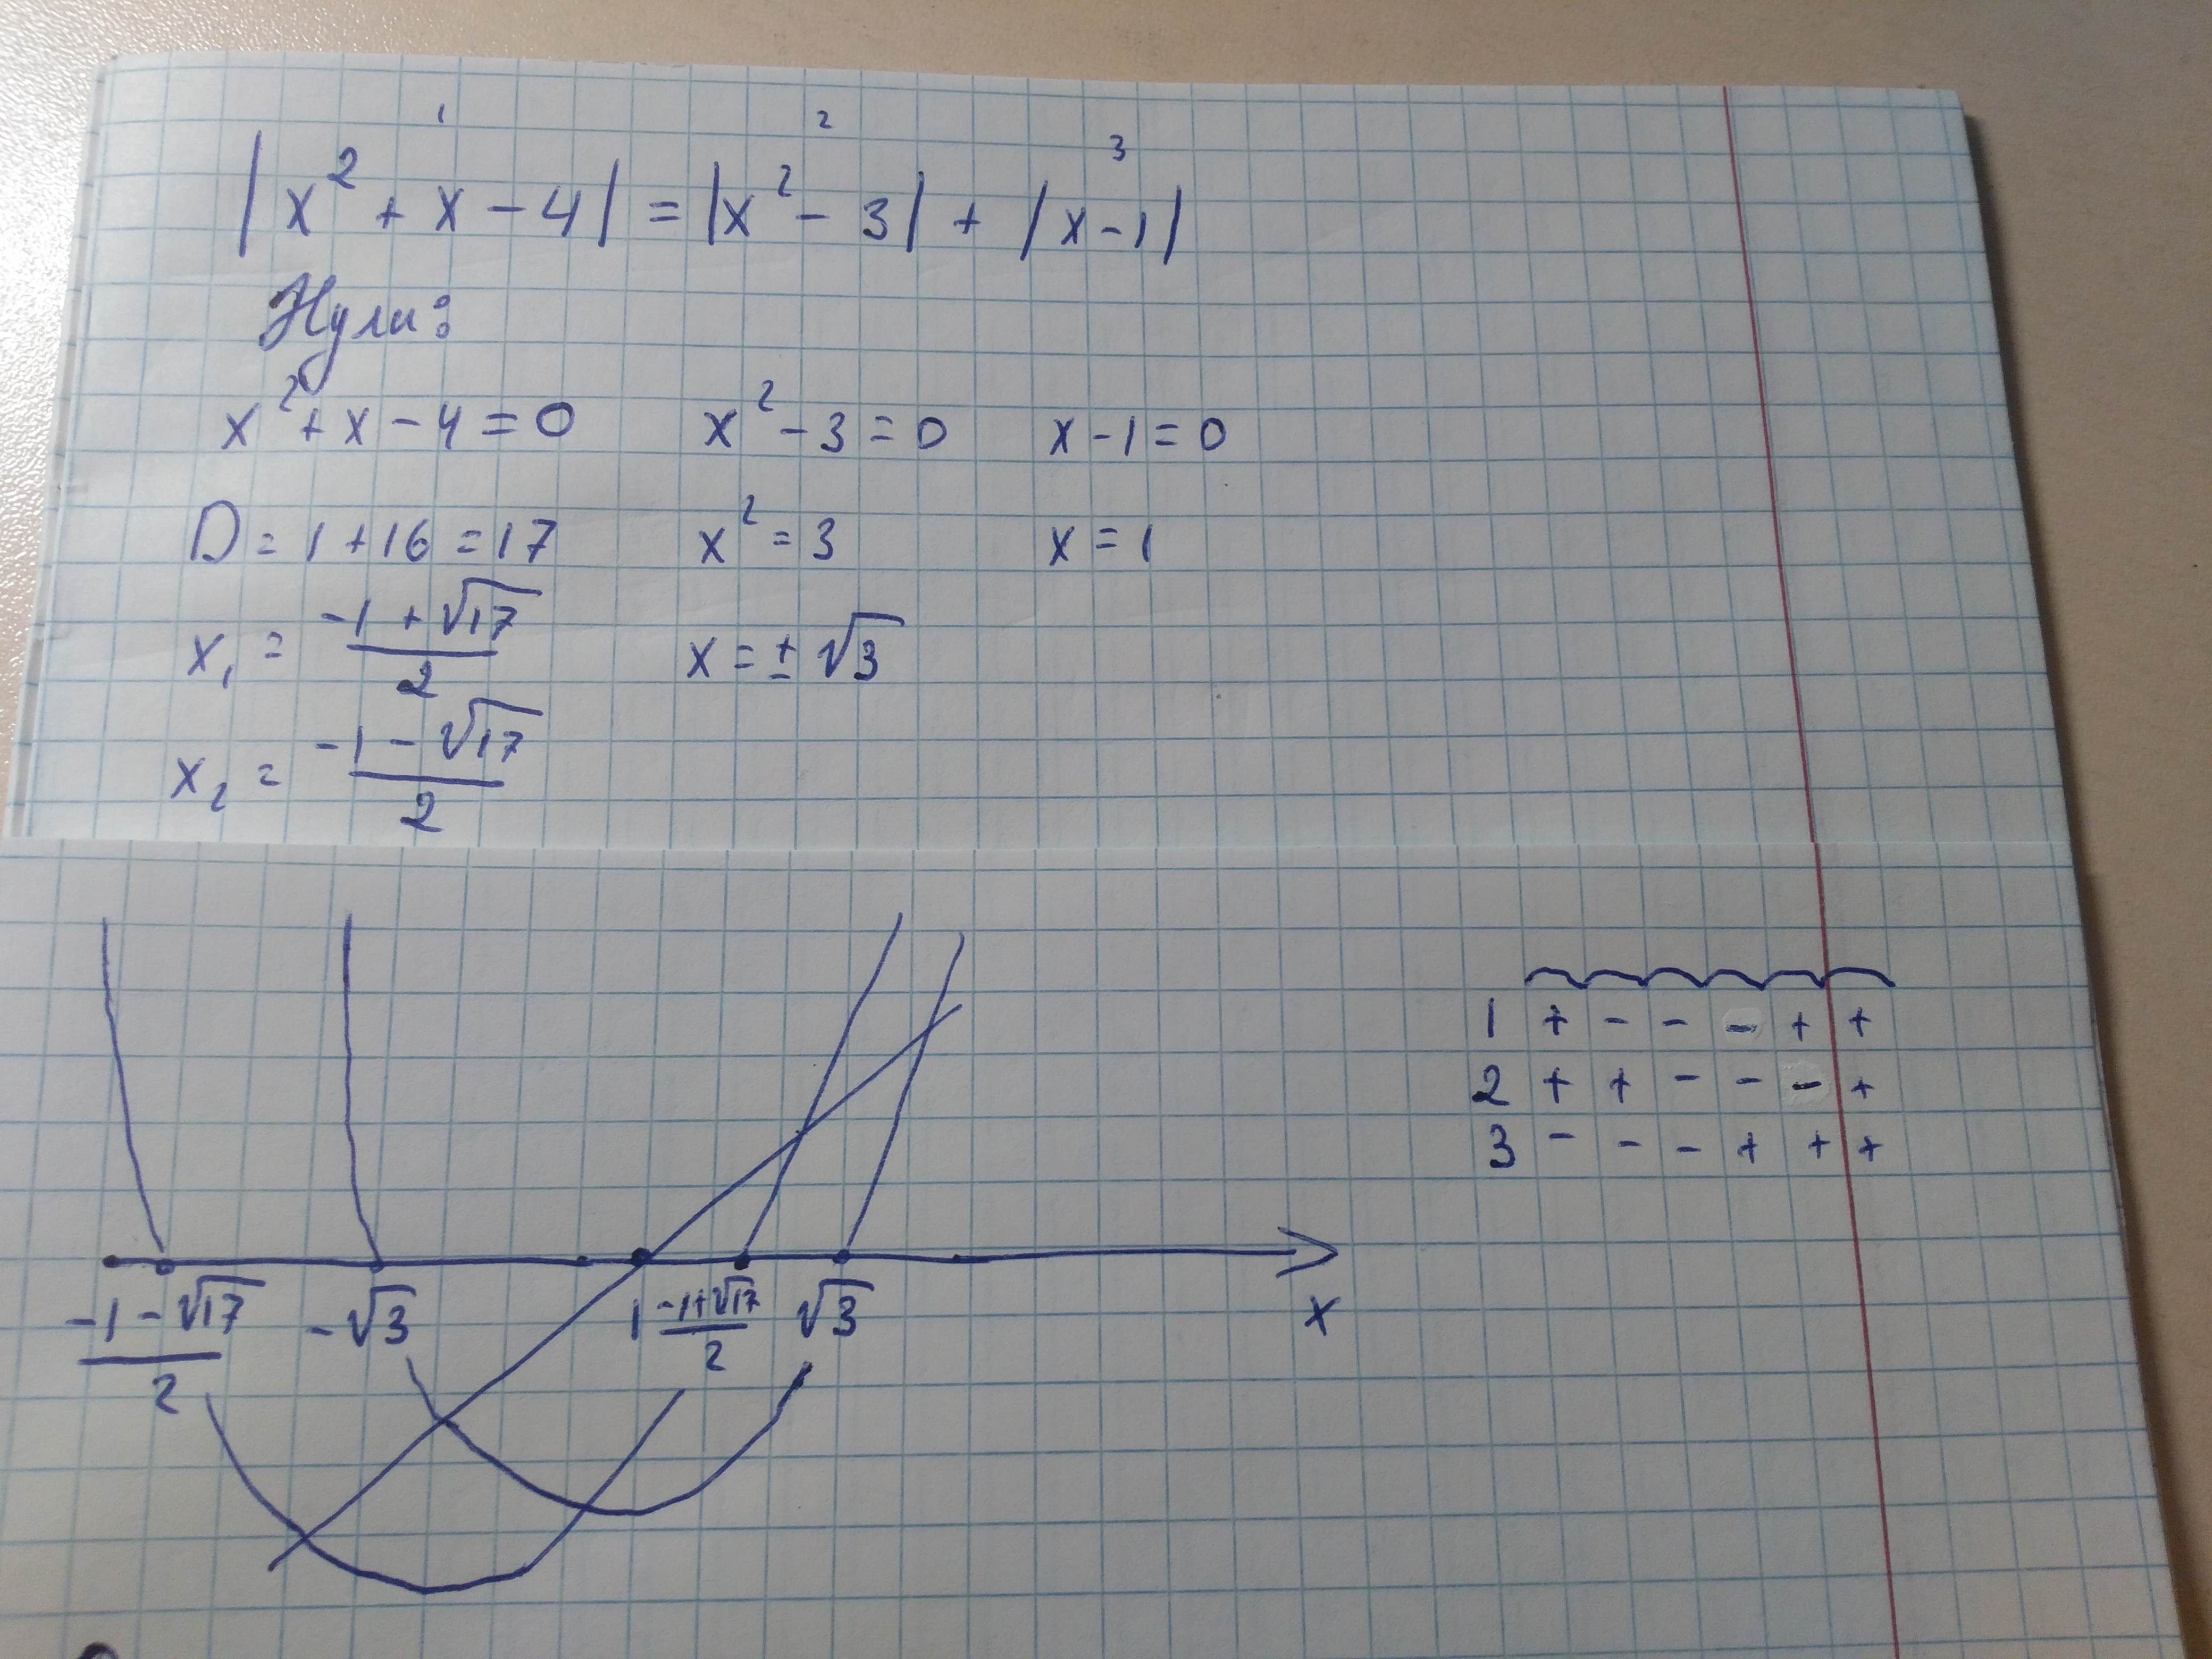 1 2 3
|x² + x - 4| = |x² - 3| + |x - 1|
Нули:
x² + x - 4 = 0 x² - 3 = 0 x - 1 = 0
D = 1 + 16 = 17 x² = 3 x = 1
x₁ = (-1 + √17)/2 x = ± √3
x₂ = (-1 - √17)/2
1 + - - - + +
2 + + - - - +
3 - - - + + +
(-1 - √17)/2 -√3 1 (-1+√17)/2 √3 x